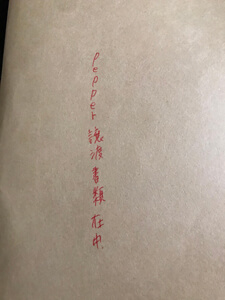 Pepper譲渡書類在中